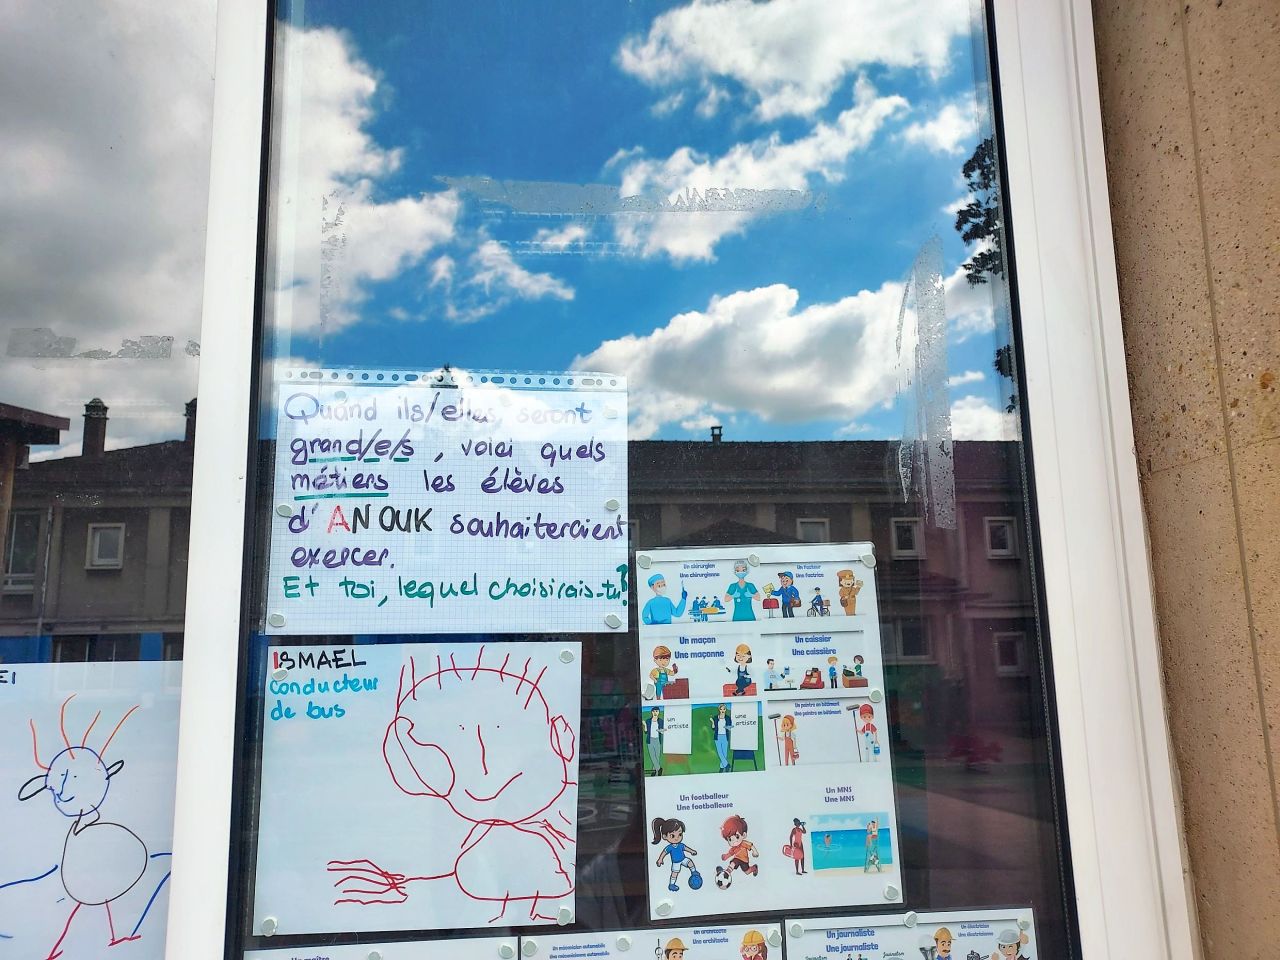 Quand ils/elles seront
grand/e/s, voici quels
métiers les élèves
d'ANOUK souhaiteraient
exercer.
Et toi, lequel choisirais-tu?
EI
ISMAEL
conducteur
de bus
Un chirurgien
Une chirurgienne
Un facteur
Une factrice
Un maçon
Une maçonne
Un caissier
Une caissière
un
artiste
une
artiste
Un peintre en bâtiment
Une peintre en bâtiment
Un footballeur
Une footballeuse
Un MNS
Une MNS
Un maître
Un mécanicien automobile
Une mécanicienne automobile
Un architecte
Une architecte
Un journaliste
Une journaliste
Un électricien
Une électricienne